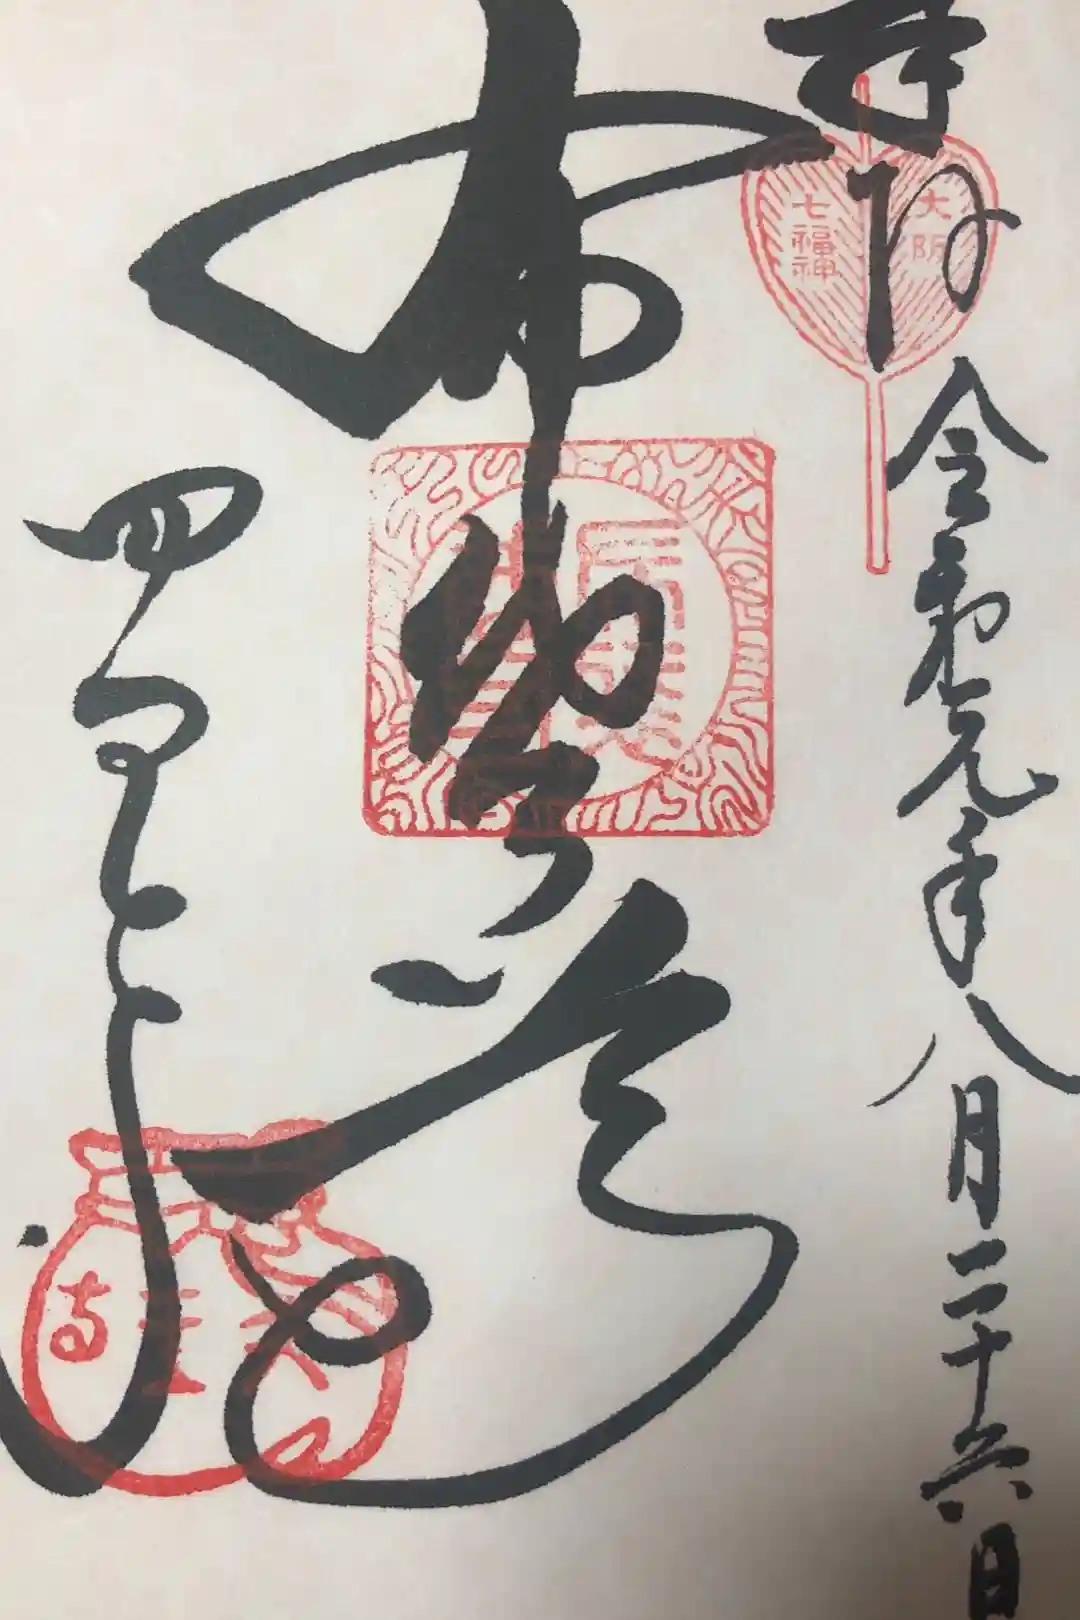 奉拝
大阪
七福神
令和元年八月二十六日
布袋尊
四天王寺